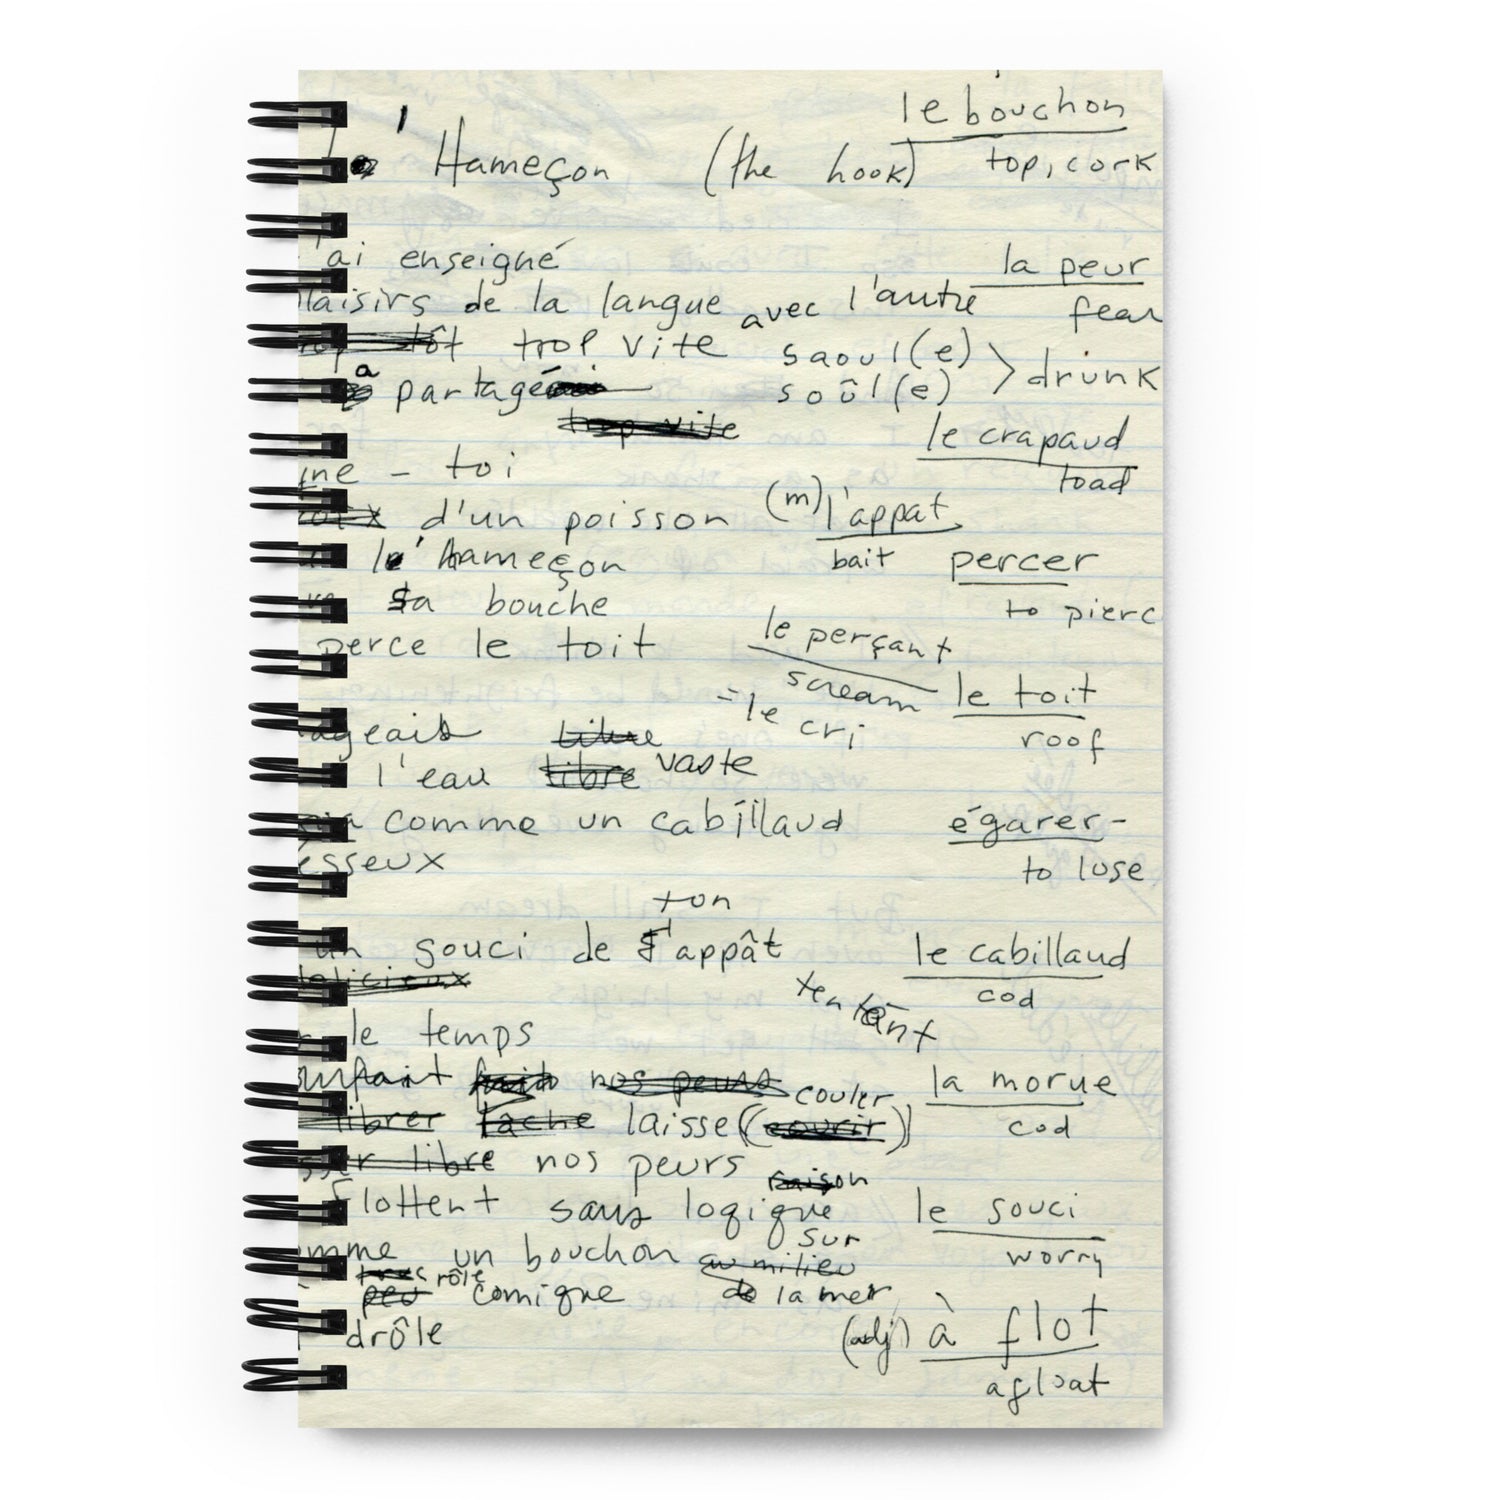 le bouchon
Hameçon (the hook) top, cork
ai enseigné
la peur
laisirs de la langue avec l'autre
fear
tôt trop vite saoul(e)
drunk
a partagé soûl(e)
trop vite
le crapaud
toad
ine - toi
d'un poisson (m) l'appat
l'hameçon bait percer
sa bouche to pierc
perce le toit le perçant
scream le toit
= le cri roof
ageais libre
l'eau libre vaste
comme un cabillaud égarer-
esseux to lose
ton
un souci de l'appât le cabillaud
delicieux cod
tentant
le temps
nos peurs couler la morue
librer lache laisse (courir) cod
sser libre nos peurs
raison
flottent sans logique le souci
sur
mme un bouchon au milieu worry
rôle
peu comique de la mer
drôle (adj) à flot
afloat